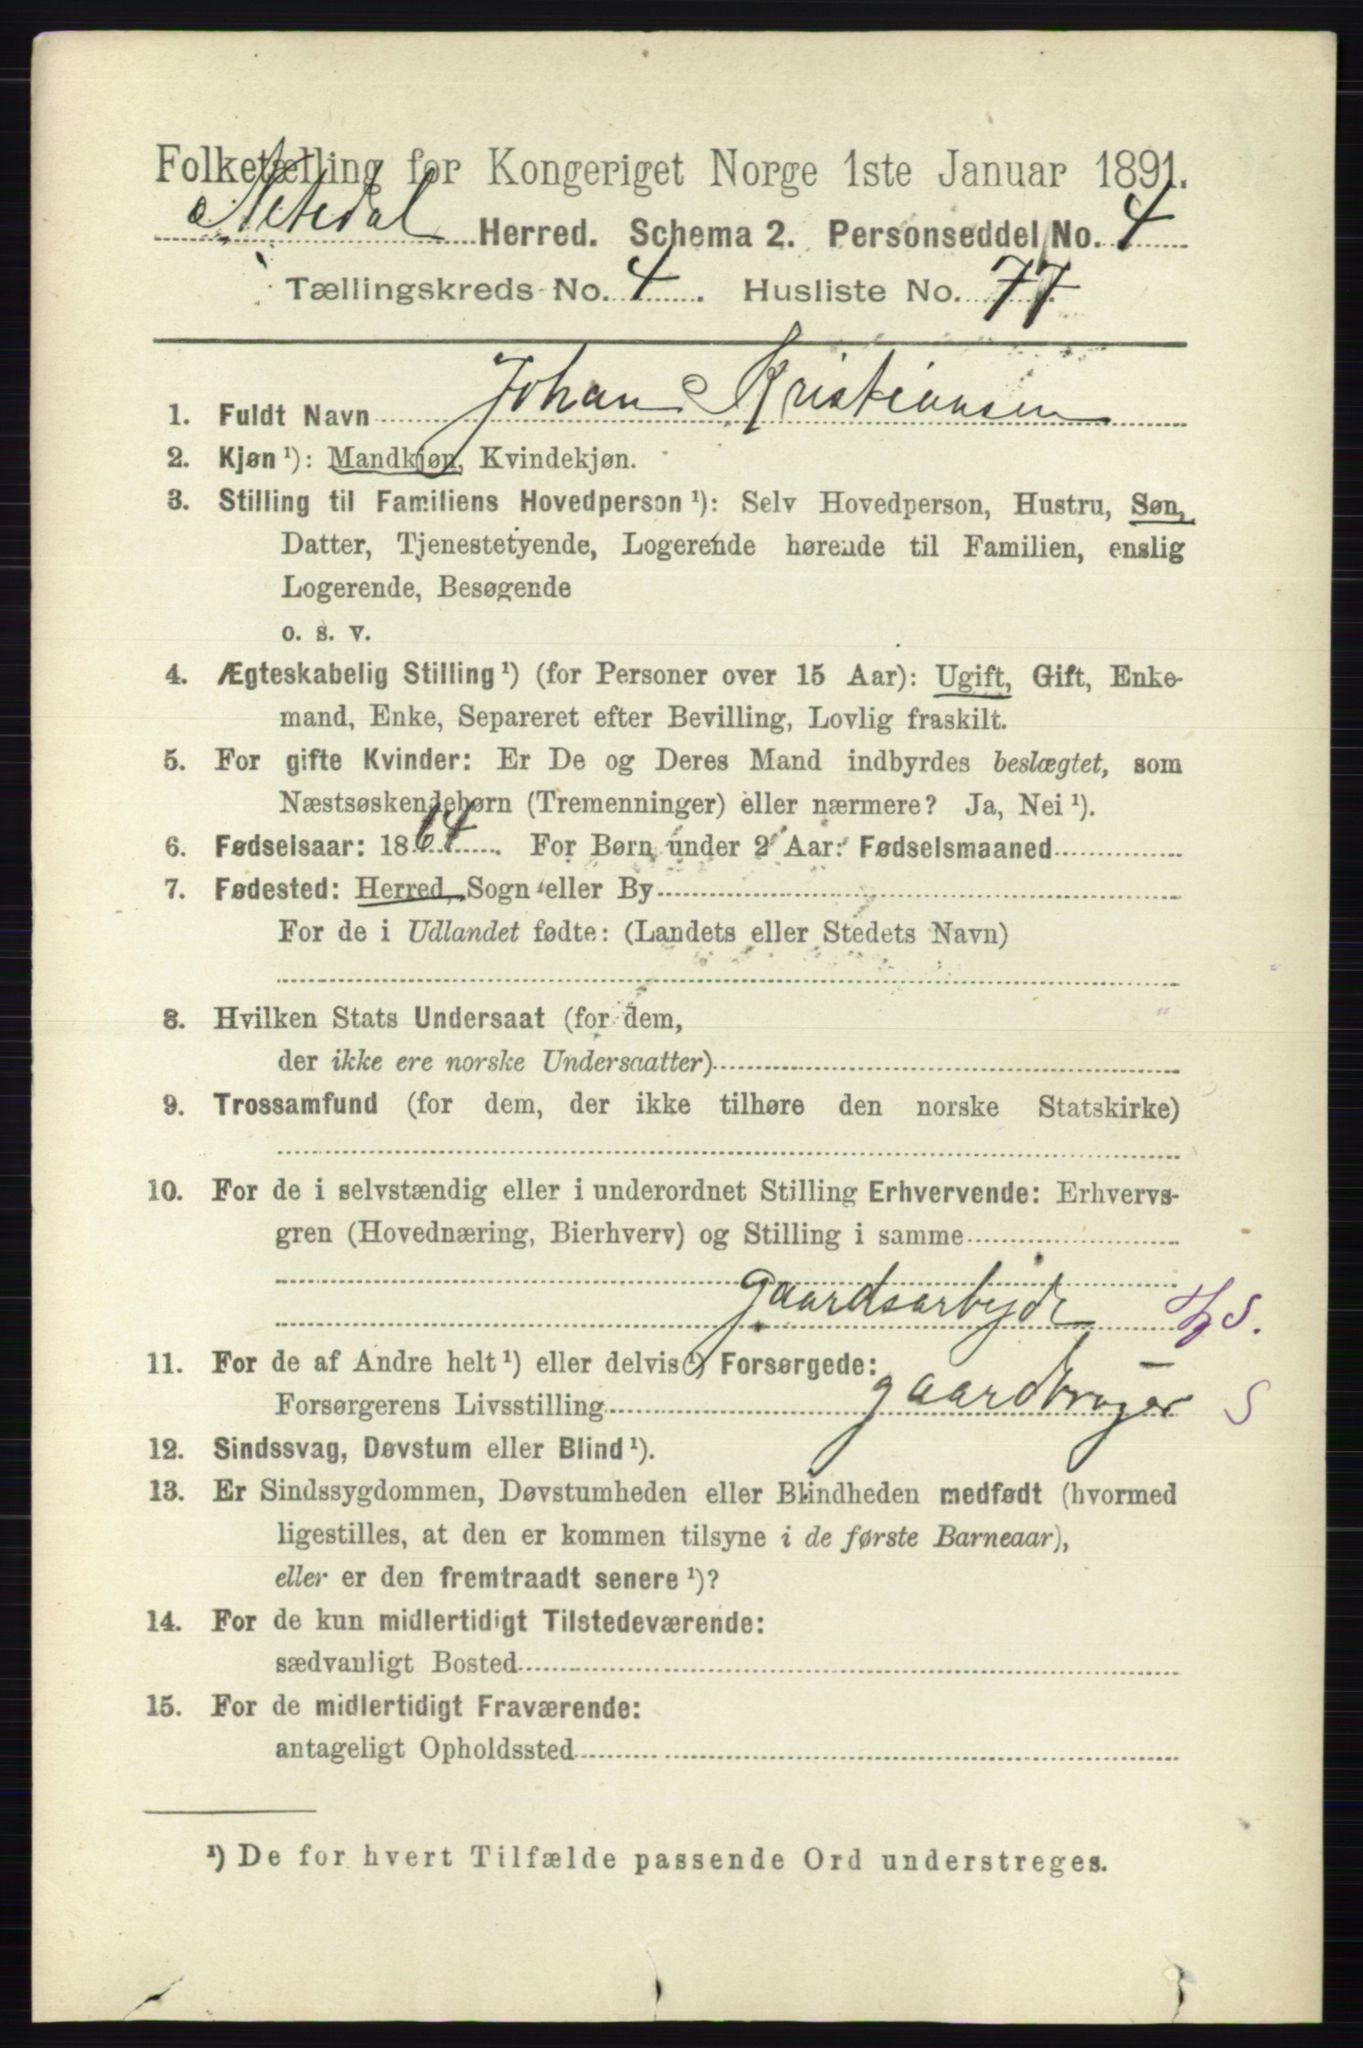 Folketælling for Kongeriget Norge 1ste Januar 1891.
Herred. Schema 2. Personseddel No. 4
Tællingskreds No. 4. Husliste No. 77.
1. Fuldt Navn Johan Kristiansen
2. Kjøn ¹): Mandkjøn, Kvindekjøn.
3. Stilling til Familiens Hovedperson ¹): Selv Hovedperson, Hustru, Søn,
Datter, Tjenestetyende, Logerende hørende til Familien, enslig
Logerende, Besøgende
o. s. v.
4. Ægteskabelig Stilling ¹) (for Personer over 15 Aar): Ugift, Gift, Enke-
mand, Enke, Separeret efter Bevilling, Lovlig fraskilt.
5. For gifte Kvinder: Er De og Deres Mand indbyrdes beslægtet, som
Næstsøskendebørn (Tremenninger) eller nærmere? Ja, Nei ¹).
6. Fødselsaar: 1864. For Børn under 2 Aar: Fødselsmaaned
7. Fødested: Herred, Sogn eller By
For de i Udlandet fødte: (Landets eller Stedets Navn)
8. Hvilken Stats Undersaat (for dem,
der ikke ere norske Undersaatter)
9. Trossamfund (for dem, der ikke tilhøre den norske Statskirke)
10. For de i selvstændig eller i underordnet Stilling Erhvervende: Erhvervs-
gren (Hovednæring, Bierhverv) og Stilling i samme
gaardsarbejde
11. For de af Andre helt ¹) eller delvis ¹) Forsørgede:
Forsørgerens Livsstilling gaardbruger S
12. Sindssvag, Døvstum eller Blind ¹).
13. Er Sindssygdommen, Døvstumheden eller Blindheden medfødt (hvormed
ligestilles, at den er kommen tilsyne i de første Barneaar),
eller er den fremtraadt senere ¹)?
14. For de kun midlertidigt Tilstedeværende:
sædvanligt Bosted
15. For de midlertidigt Fraværende:
antageligt Opholdssted
¹) De for hvert Tilfælde passende Ord understreges.